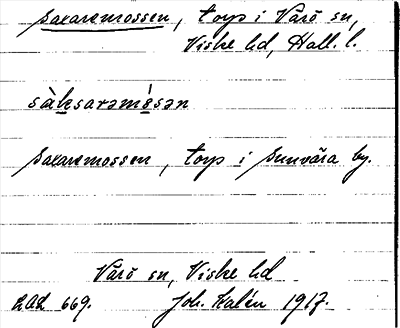 Saxaremossen, torp i Värö sn,
Viske hd, Hall. l.
sàksarəmósən
Saxaremossen, torp i Sunvära by.
Värö sn, Viske hd
LAL 669. Joh. Kalén 1917.